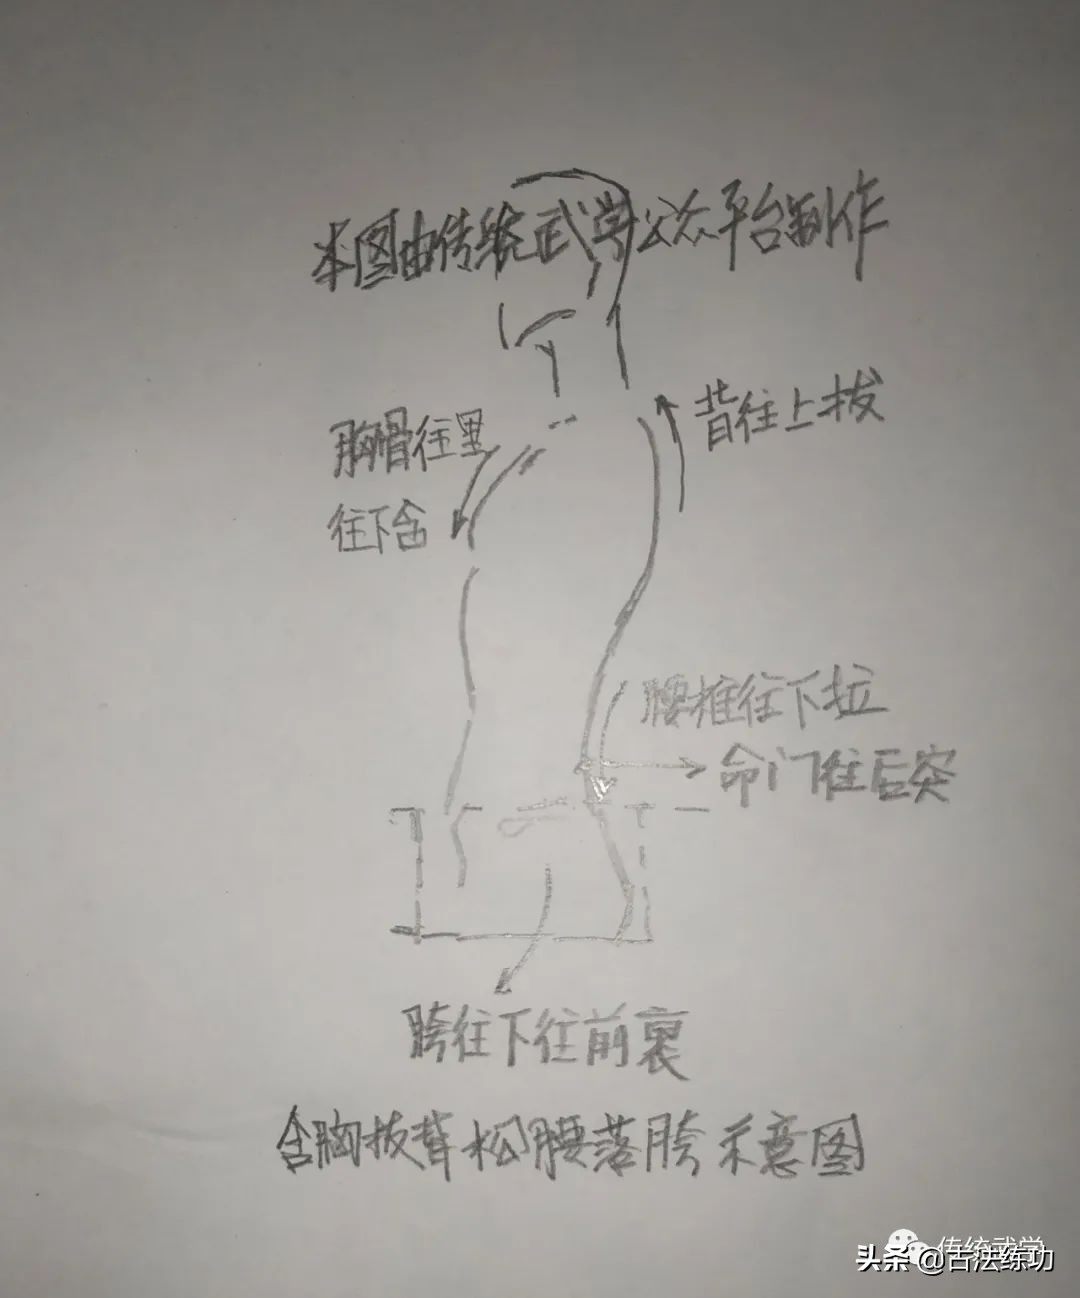 本图由传统武学公众平台制作
背往上拔
胸骨往里
往下含
腰椎往下拉
命门往后突
胯往下往前裹
含胸拔背松腰落胯示意图
传统武学
头条@古法练功